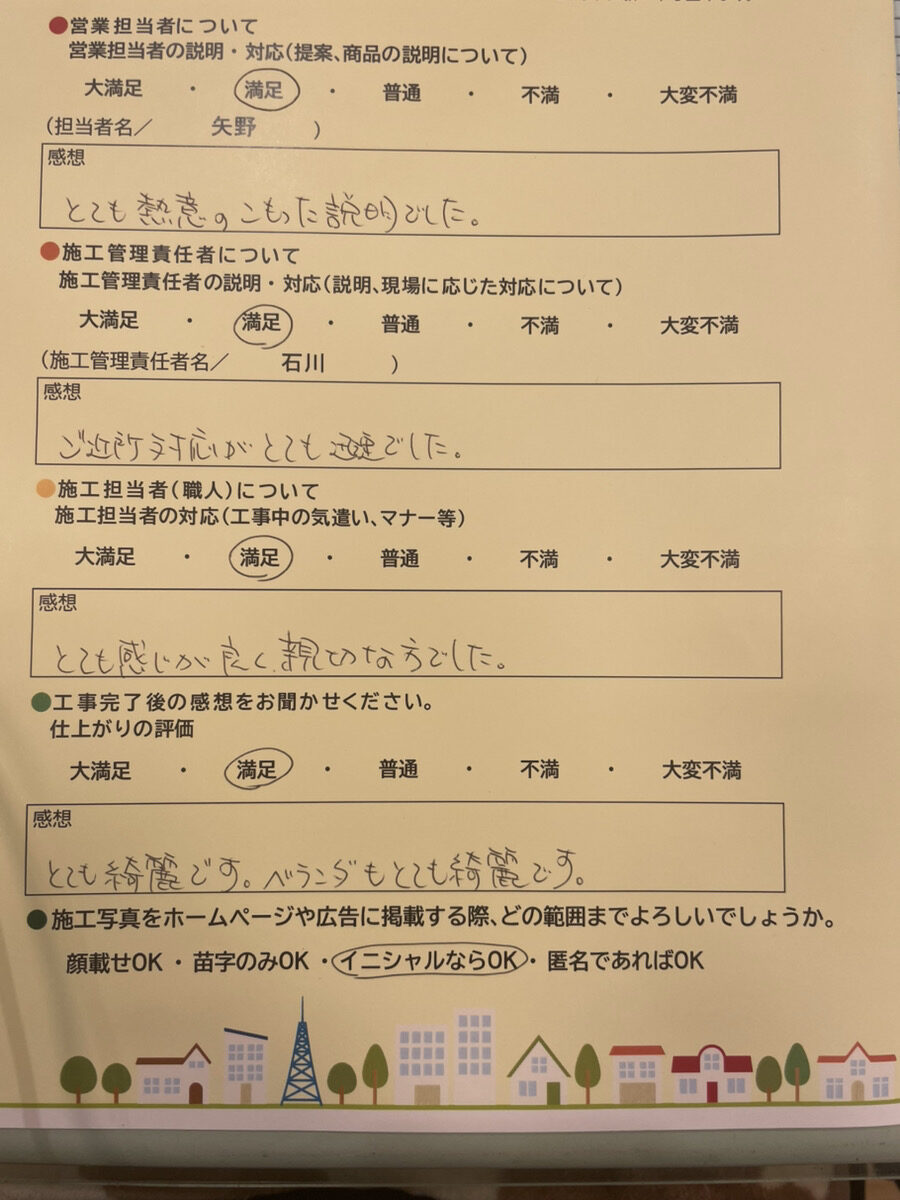 ●営業担当者について
営業担当者の説明・対応(提案、商品の説明について)
大満足 ・ 満足 ・ 普通 ・ 不満 ・ 大変不満
(担当者名／ 矢野 )
感想
とても熱意のこもった説明でした。
●施工管理責任者について
施工管理責任者の説明・対応(説明、現場に応じた対応について)
大満足 ・ 満足 ・ 普通 ・ 不満 ・ 大変不満
(施工管理責任者名／ 石川 )
感想
ご近所対応がとても迅速でした。
●施工担当者(職人)について
施工担当者の対応(工事中の気遣い、マナー等)
大満足 ・ 満足 ・ 普通 ・ 不満 ・ 大変不満
感想
とても感じが良く、親切な方でした。
●工事完了後の感想をお聞かせください。
仕上がりの評価
大満足 ・ 満足 ・ 普通 ・ 不満 ・ 大変不満
感想
とても綺麗です。ベランダもとても綺麗です。
●施工写真をホームページや広告に掲載する際、どの範囲までよろしいでしょうか。
顔載せOK ・ 苗字のみOK ・ イニシャルならOK ・ 匿名であればOK